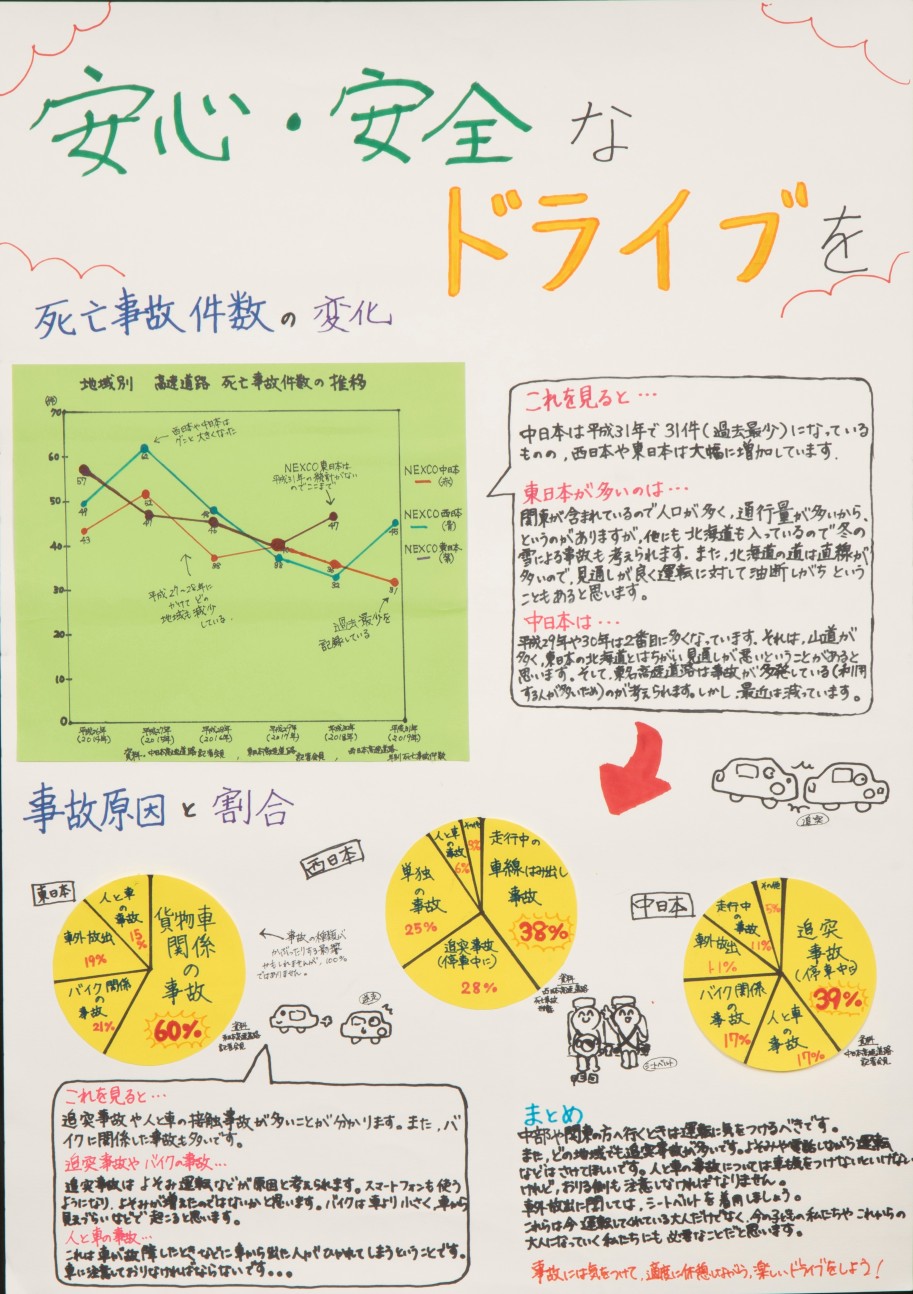 安心・安全な
ドライブを
死亡事故件数の変化
地域別 高速道路 死亡事故件数の推移
(件)
70
60
50
40
30
20
10
0
西日本や中日本は
グンと大きくなった
NEXCO東日本は
平成31年の統計がない
のでここまで
NEXCO中日本
(赤)
NEXCO西日本
(青)
NEXCO東日本
(紫)
57
49
43
62
51
47
48
46
38
38
36
32
47
45
31
平成27〜28年に
かけてどの
地域も減少
している.
過去最少を
記録している
平成26年
(2014年)
平成27年
(2015年)
平成28年
(2016年)
平成29年
(2017年)
平成30年
(2018年)
平成31年
(2019年)
これを見ると…
中日本は平成31年で31件(過去最少)になっている
ものの,西日本や東日本は大幅に増加しています.
東日本が多いのは…
関東が含まれているので人口が多く,通行量が多いから、
というのがありますが,他にも北海道も入っているので"冬の
雪による事故も考えられます.また,北海道の道は直線が
多いので,見通しが良く運転に対して油断しがちという
こともあると思います。
中日本は…
平成29年や30年は2番目に多くなっています.それは,山道が
多く,東日本の北海道とはちがい見通しが悪いということがあると
思います。そして,東名高速道路は事故が多発している(利用
する人が多いため)のが考えられます。しかし,最近は減っています。
追突
事故原因と割合
東日本
貨物車
関係
の
事故
60%
バイク関係
の
事故
21%
車外放出
19%
人と車
の
事故
15%
事故の種類が
かぶったりする影響
かもしれませんが,100%
ではありません.
西日本
走行中の
車線はみ出し
事故
38%
追突事故
(停車中に)
28%
単独
の
事故
25%
人と車
の
事故
6%
その他
中日本
追突
事故
(停車中も)
39%
人と車
の
事故
17%
バイク関係
の
事故
17%
車外放出
11%
走行中
の
事故
11%
その他
5%
追突
シートベルト
これを見ると…
追突事故や人と車の接触事故が多いことが分かります。また,バ
イクに関係した事故も多いです。
追突事故やバイクの事故…
追突事故はよそみ運転などが原因と考えられます。スマートフォンも使う
ようになり,よそみが増えたのではないかと思います。バイクは車より小さく,車から
見えづらいなどで起こると思います。
人と車の事故…
これは車が故障したときなどに車から出た人がひかれてしまうということです。
車に注意しておりなければならないです。。。
まとめ
中部や関東の方へ行くときは運転に気をつけるべきです。
また,どの地域でも追突事故が多いです。よそみや電話しながら運転
などはさけてほしいです。人と車の事故については車も気をつけないといけない
けれど,おりる側も注意しなければなりません。
車外放出に関しては,シートベルトを着用しましょう。
これらは今運転してくれている大人だけでなく,今の子どもの私たちやこれからの
大人になっていく私たちにも必要なことだと思います。
事故には気をつけて,適度に休憩しながら,楽しいドライブをしよう!